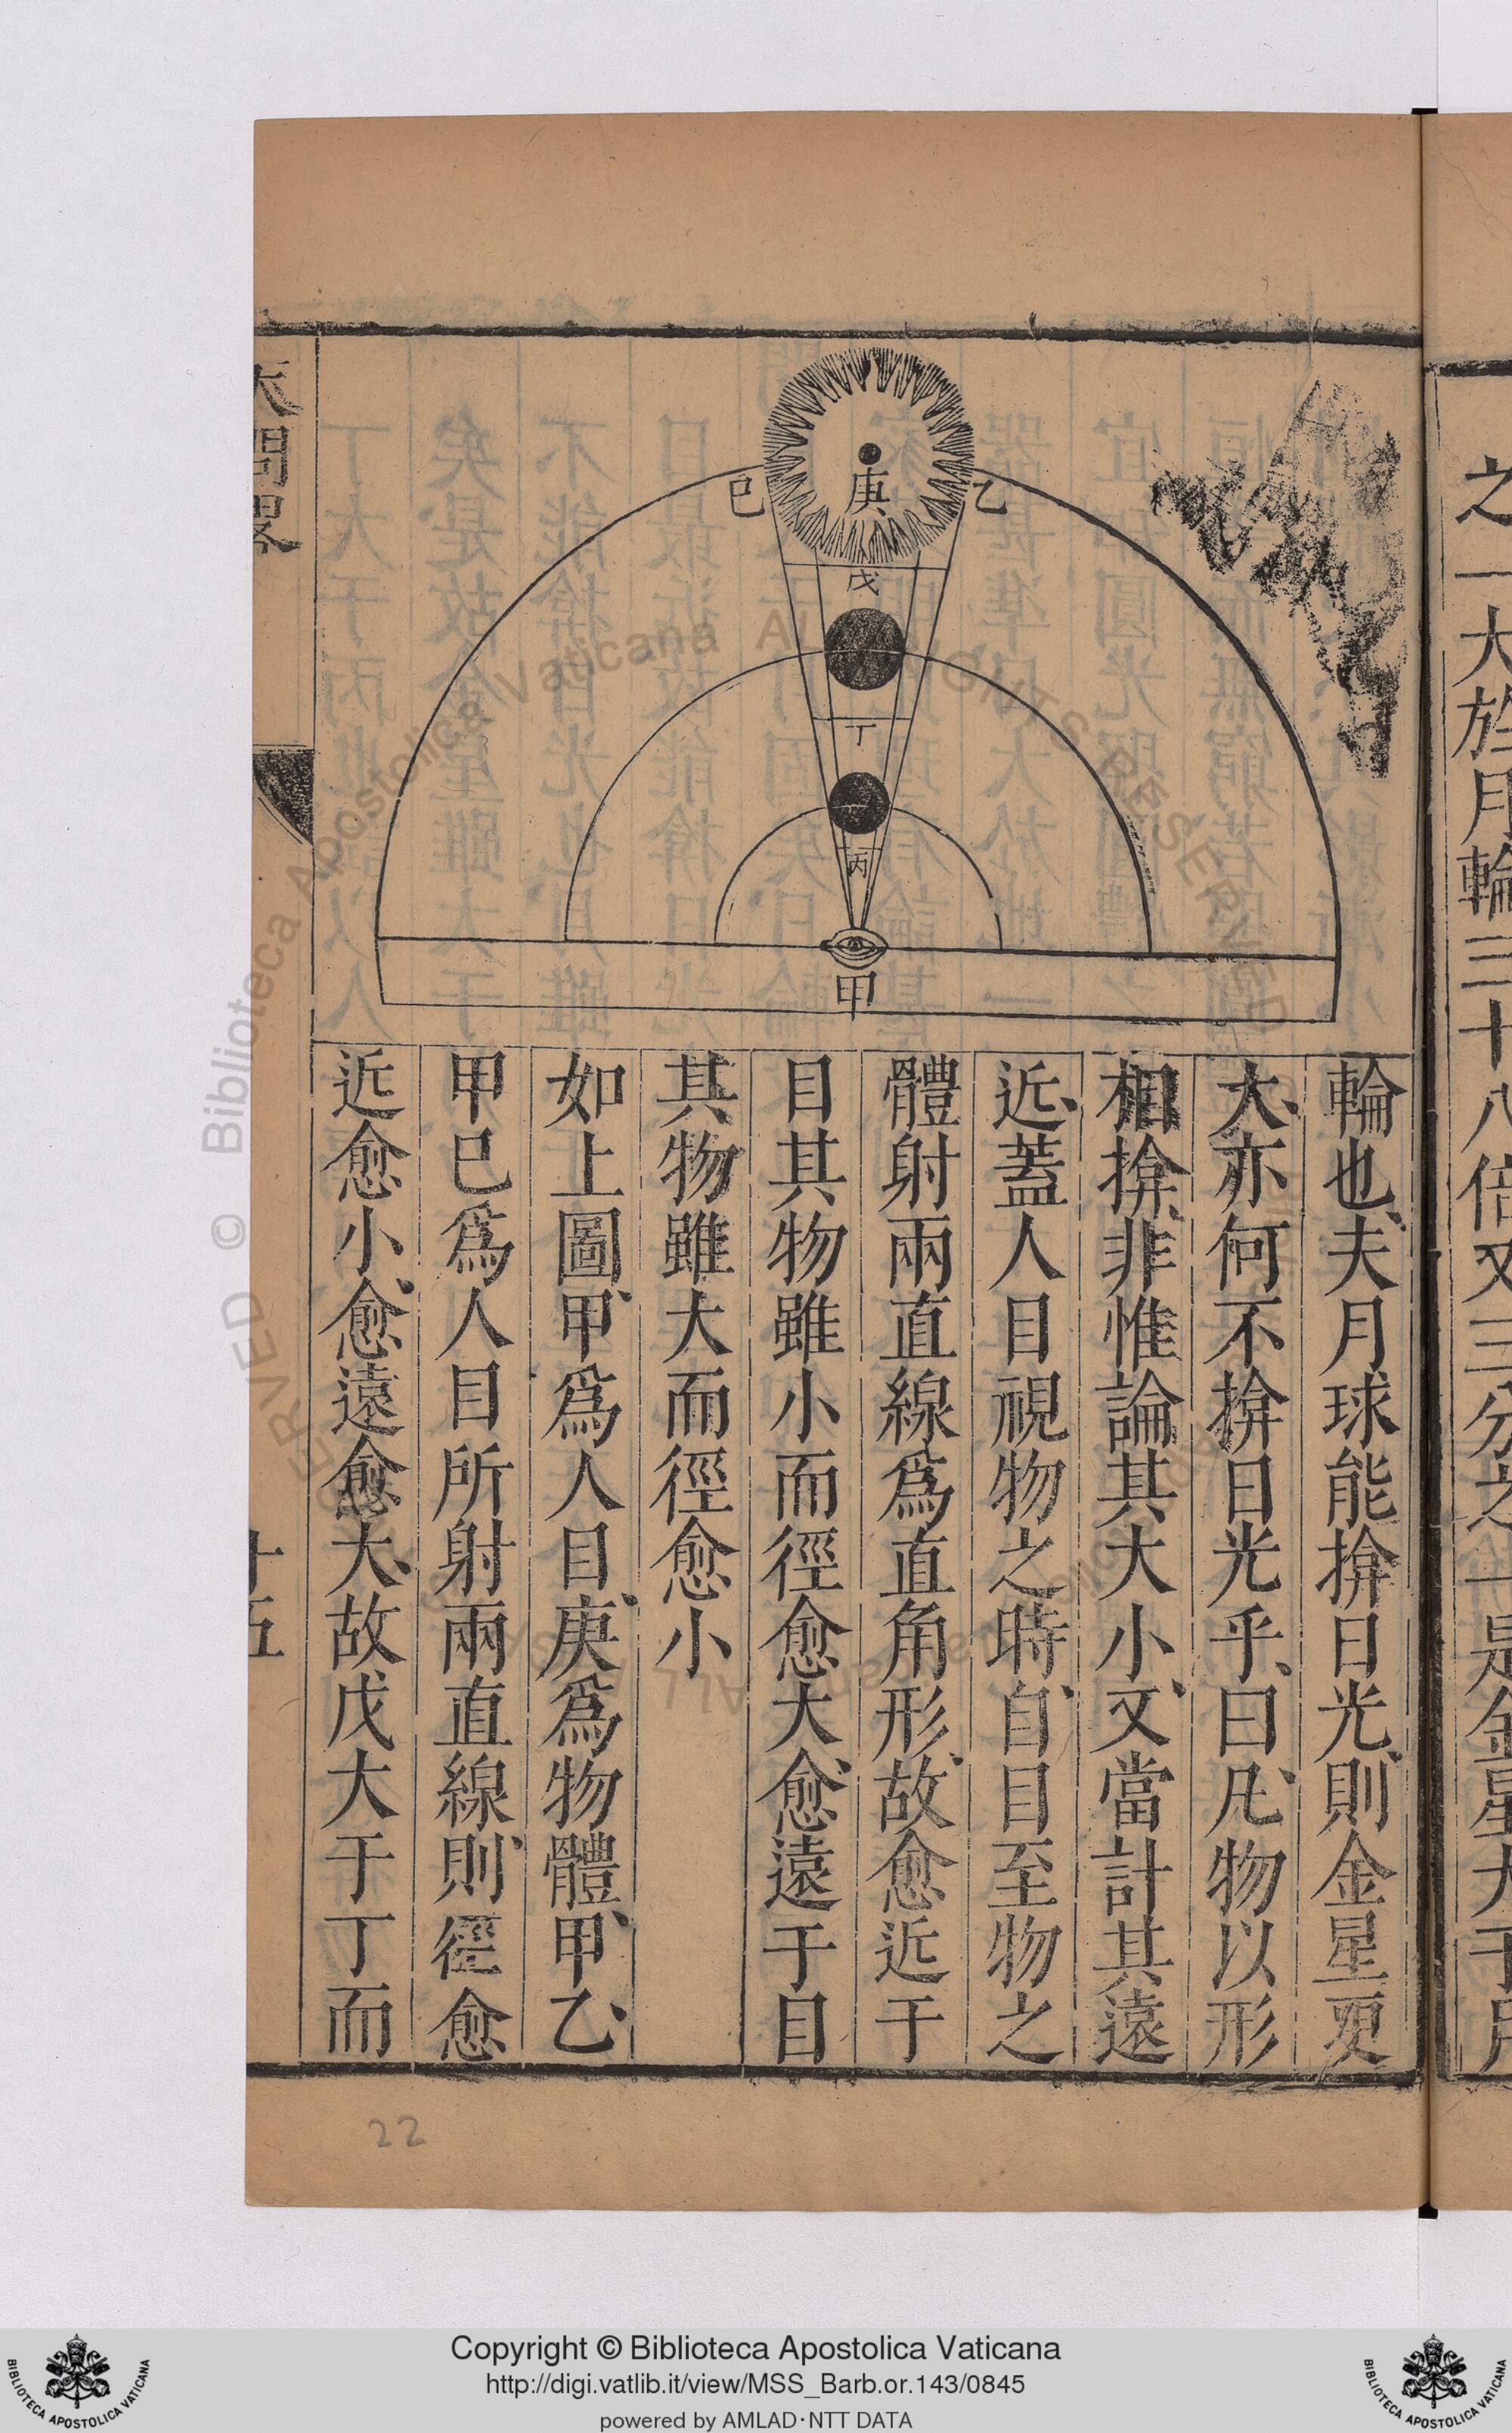 之一大於月輪三十八倍又三分之一是金星大于月
庚
乙
巳
戊
丁
丙
甲
輪也、夫月球能揜日光、則金星更
大、亦何不揜日光乎、曰、凡物以形
相揜、非惟論其大小、又當計其遠
近、蓋人目視物之時、自目至物之
體射兩直線爲直角形、故愈近于
目其物雖小而徑愈大、愈遠于目
其物雖大而徑愈小
如上圖、甲爲人目、庚爲物體、甲乙、
甲巳爲人目所射兩直線、則徑愈
近愈小、愈遠愈大、故戊大于丁而
天問畧
十五
22
© Biblioteca Apostolica Vaticana ALL RIGHTS RESERVED
Copyright © Biblioteca Apostolica Vaticana
http://digi.vatlib.it/view/MSS_Barb.or.143/0845
powered by AMLAD·NTT DATA
BIBLIOTECA APOSTOLICA VATICANA
BIBLIOTECA APOSTOLICA VATICANA